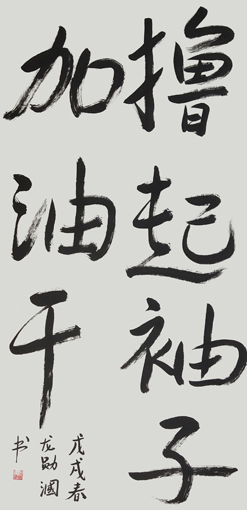 撸起袖子
加油干
戊戌春
龙勋涠
书